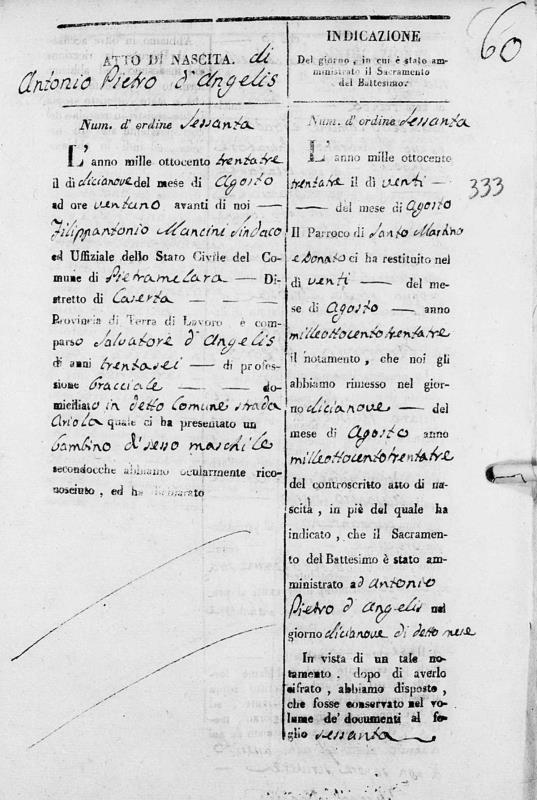 60
ATTO DI NASCITA. di
Antonio Pietro d'Angelis
Num. d'ordine Sessanta
L'anno mille ottocento trentatre
il dì dicianove del mese di Agosto
ad ore ventuno avanti di noi —
Filippantonio Mancini Sindaco
ed Uffiziale dello Stato Civile del Co-
mune di Pietramelara — Di-
stretto di Caserta — — —
Provincia di Terra di Lavoro è com-
parso Salvatore d'Angelis
di anni trentasei — di profes-
sione bracciale — do-
miciliato in detto Comune strada
Ariola quale ci ha presentato un
bambino di sesso maschile
secondocche abbiamo ocularmente rico-
nosciuto, ed ha dichiarato
INDICAZIONE
Del giorno, in cui è stato am-
ministrato il Sacramento
del Battesimo.
Num. d'ordine Sessanta
L'anno mille ottocento
trentatre il dì venti —
— del mese di Agosto
Il Parroco di Santo Martino
e Donato ci ha restituito nel
dì venti — del me-
se di Agosto — anno
milleottocentotrentatre
il notamento, che noi gli
abbiamo rimesso nel gior-
no dicianove — del
mese di Agosto anno
milleottocentotrentatre
del controscritto atto di na-
scità, in piè del quale ha
indicato, che il Sacramen-
to del Battesimo è stato am-
ministrato ad Antonio
Pietro d'Angelis nel
giorno dicianove di detto mese
In vista di un tale no-
tamento. dopo di averlo
cifrato, abbiamo disposto,
che fosse conservato nel vo-
lume de' documenti al fo-
glio sessanta
333